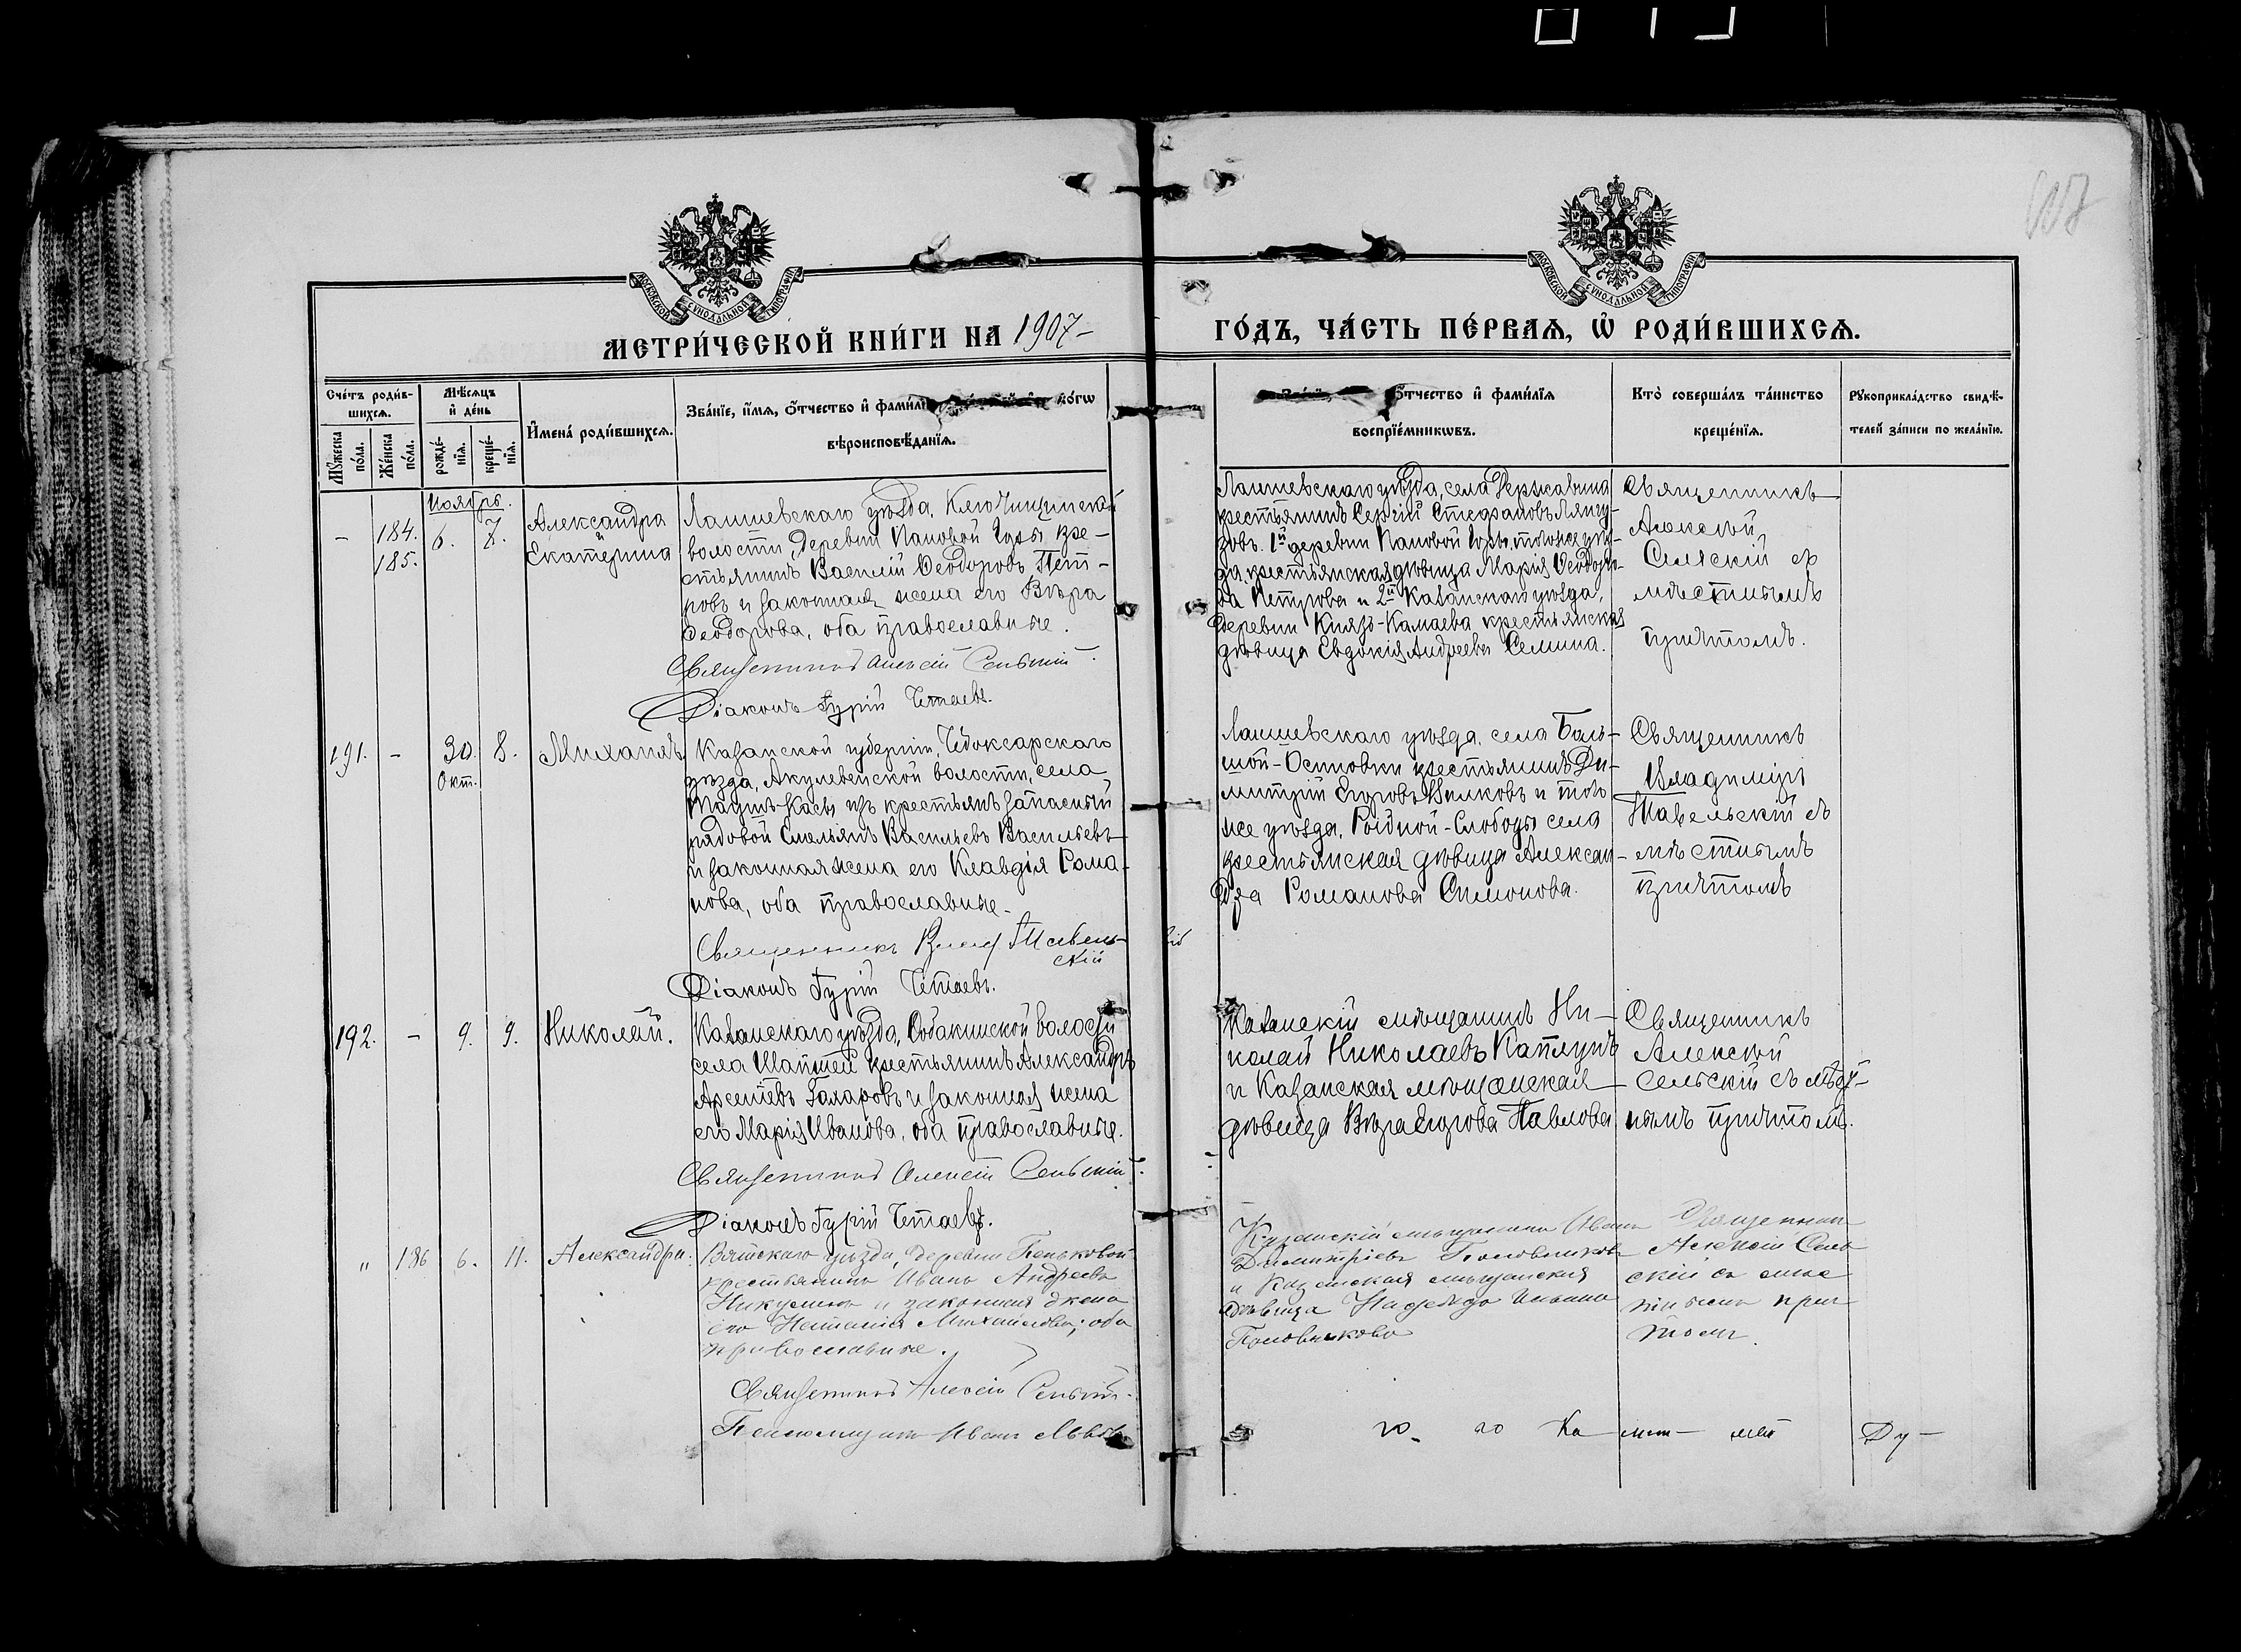 МОСКОВСКОЙ СѴНОДАЛЬНОЙ ТИПОГРАФІИ
МОСКОВСКОЙ СѴНОДАЛЬНОЙ ТИПОГРАФІИ
МЕТРИ́ЧЕСКОЙ КНИ́ГИ НА 1907-
ГО́ДЪ, ЧА́СТЬ ПЕ́РВАѦ, Ѡ РОДИ́ВШИХСѦ.
Сче́тъ роди́в-
шихсѧ.
Мꙋ́жеска по́ла.
Же́нска по́ла.
Мѣ́сѧцъ
и де́нь
рожде́-
нїѧ.
креще́-
нїѧ.
И҆мена̀ роди́вшихсѧ.
Зва́нїе, и҆́мѧ, ѻ҆́тчество и҆ фами́лї ко́гѡ
вѣроисповѣ́данїѧ.
ѻ҆́тчество и҆ фами́лїѧ
воспрїе́мникѡвъ.
Кто̀ соверша́лъ та́инство
креще́нїѧ.
Рꙋкоприкла́дство свидѣ́-
телей за́писи по жела́нїю.
Ноябрь.
- 184. 185. 6. 7.
Александра
и
Екатерина
Лаишевскаго уѣзда, Ключищинской
волости, деревни Пановой Горы кре-
стьянинъ Василій Ѳеодоровъ Пет-
ровъ и законная жена его Вѣра
Ѳеодорова, оба православные.
Священникъ Алексій Сельскій.
Діаконъ Гурій Четаевъ.
Лаишевскаго уѣзда, села Державина
крестьянинъ Сергій Стефановъ
1й деревни Пановой Горы, того же уѣз-
да крестьянская дѣвица Марія Ѳеодоро-
ва Петрова и 2й Казанскаго уѣзда,
деревни Князь-Камаева крестьянская
дѣвица Евдокія Андреева Семина.
Священникъ
Алексѣй
Сельскій съ
мѣстнымъ
причтомъ.
191. - 30. Окт. 8. Михаилъ
Казанской губерніи, Чебоксарскаго
уѣзда, Акулевской волости, села
изъ крестьянъ запасный
рядовой Емельянъ Васильевъ Васильевъ
и законная жена его Клавдія Рома-
нова, оба православные.
Священникъ Влад Тавель-
скій
Діаконъ Гурій Четаевъ.
Лаишевскаго уѣзда, села Боль-
шой-Осиновки крестьянинъ Ди-
митрій Егоровъ Волковъ и того
же уѣзда, Рождной-Слободы села
крестьянская дѣвица Алексан-
дра Романова Симонова.
Священникъ
Владиміръ
Тавельскій съ
мѣстнымъ
причтомъ
192. - 9. 9. Николай.
Казанскаго уѣзда, Собакинской волости
села Шапшей крестьянинъ Александръ
Арсеніевъ Захаровъ и законная жена
его Марія Иванова, оба православные.
Священникъ Алексій Сельскій.
Діаконъ Гурій Четаевъ.
Казанскій мѣщанинъ Ни-
колай Николаевъ Каплунъ
и Казанская мѣщанская
дѣвица Вѣра Егорова Павлова
Священникъ
Алексѣй
Сельскій съ мѣст-
нымъ причтомъ.
" 186 6. 11. Александра.
Вятскаго уѣзда, деревни Пеньковой
крестьянинъ Иванъ Андреевъ
Никулинъ и законная жена
его Наталія Михайлова; оба
православные.
Священникъ Алексій Сельскій.
Псаломщикъ Иванъ Львовъ
Казанскій мѣщанинъ Иванъ
Димитріевъ Половниковъ
и Казанская мѣщанская
дѣвица Надежда Иванова
Половникова
Священник
Алексій Сель
скій съ мѣс
тнымъ прич
томъ.
го го Ка мѣ Ду-